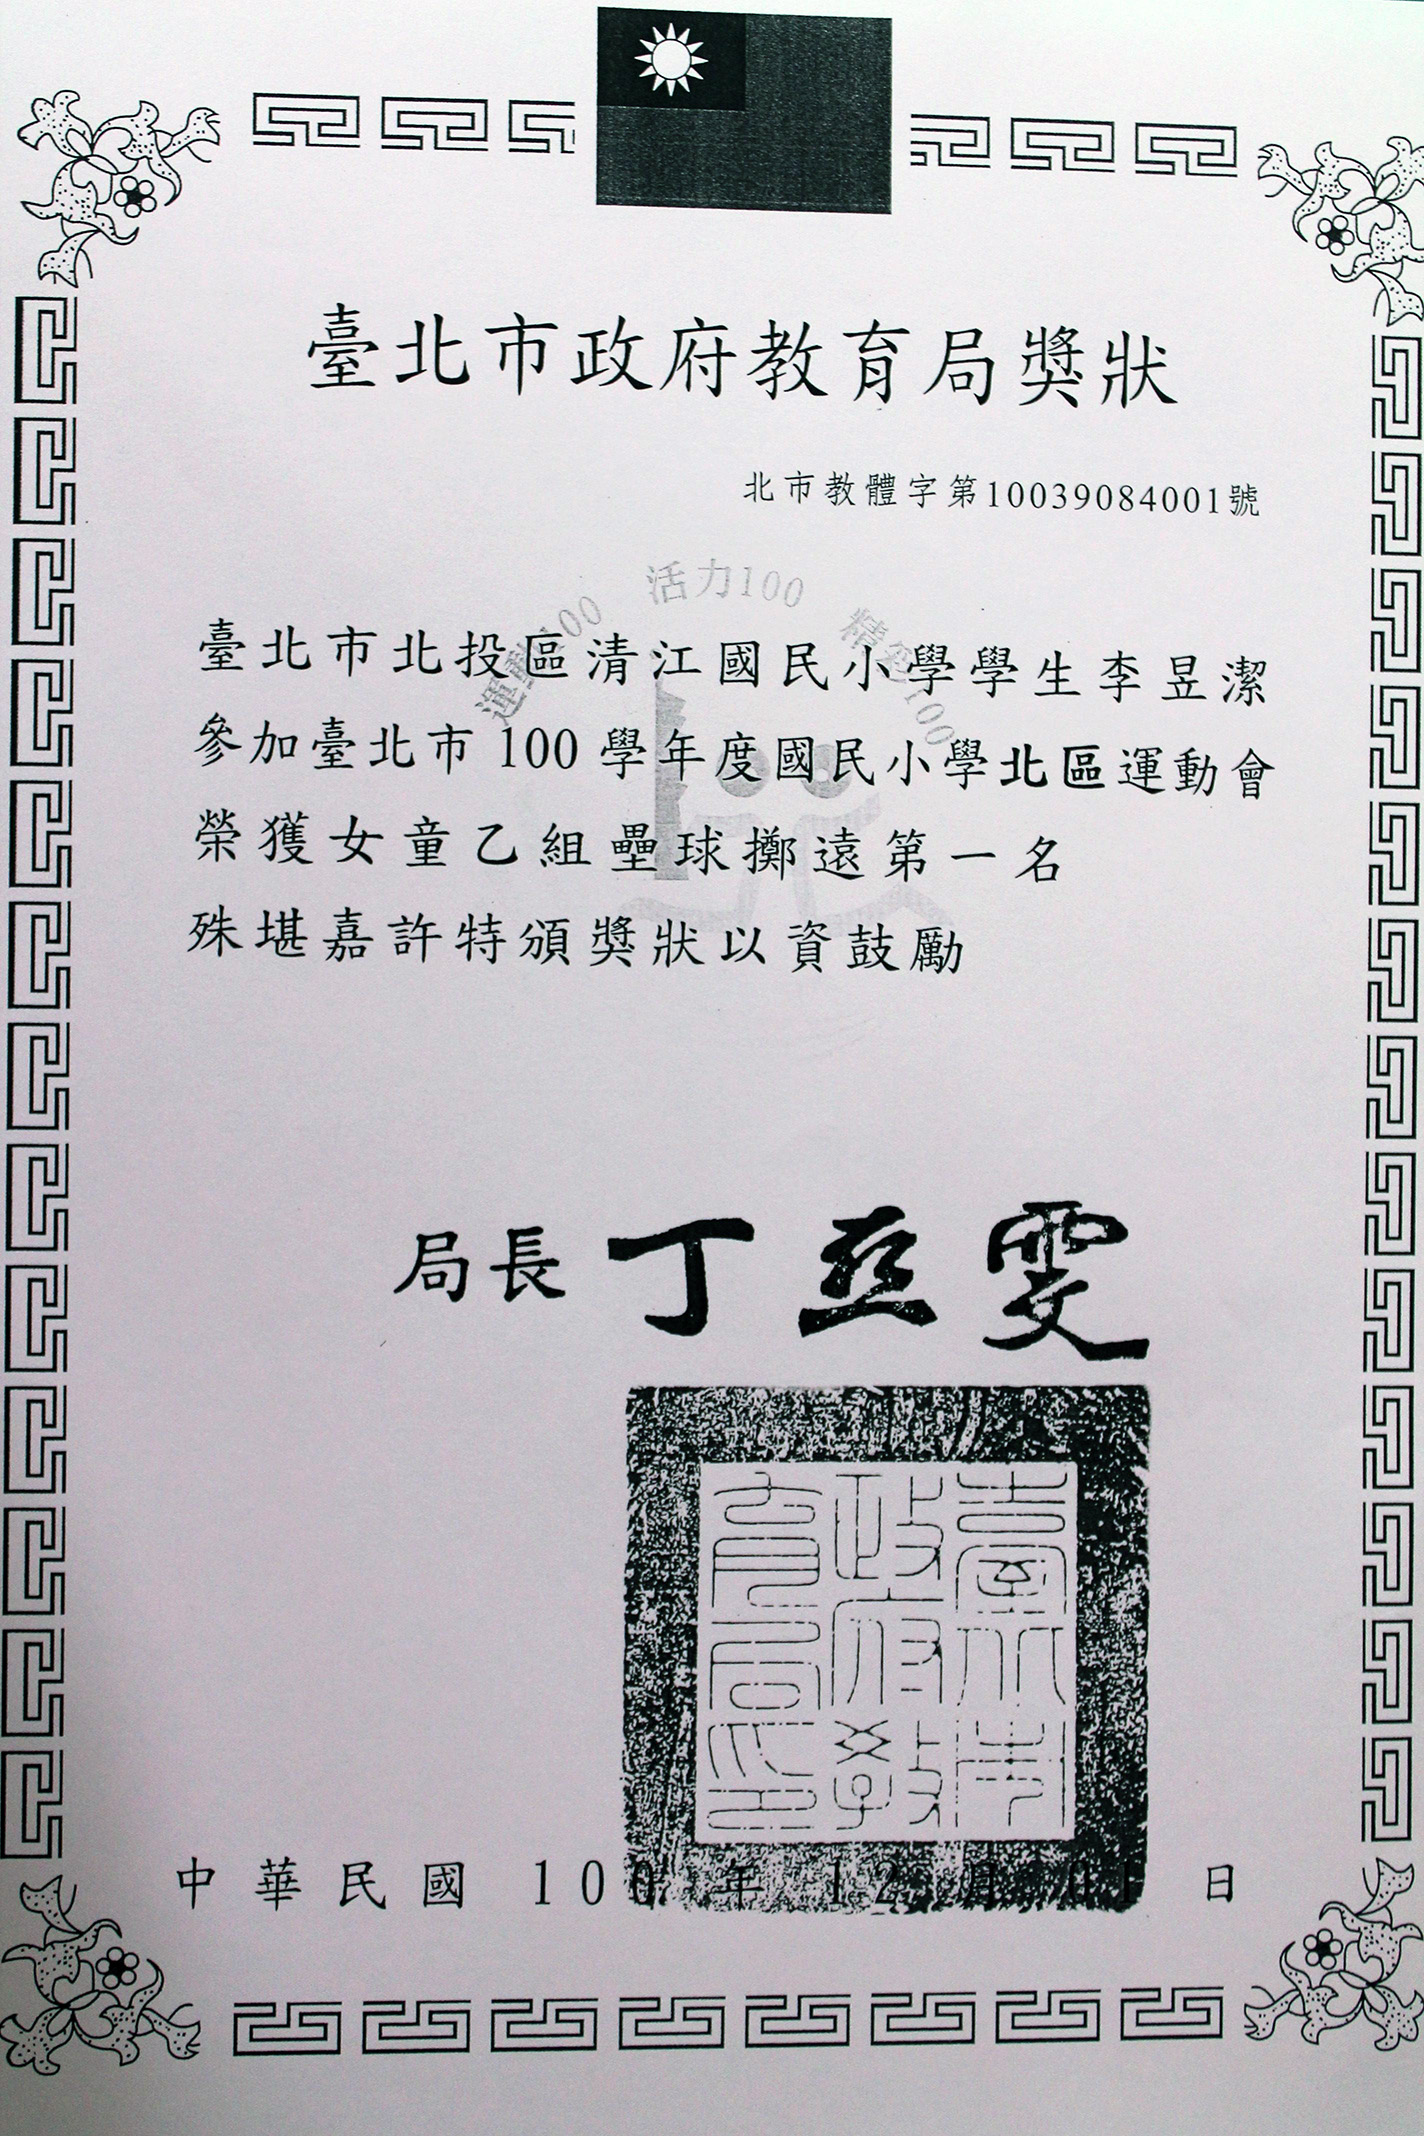 臺北市政府教育局獎狀
北市教體字第10039084001號
運動100 活力100 精彩100
臺北市北投區清江國民小學學生李昱潔
參加臺北市100學年度國民小學北區運動會
榮獲女童乙組壘球擲遠第一名
殊堪嘉許特頒獎狀以資鼓勵
局長 丁亞雯
臺北市
政府教
育局印
中華民國 100 年 12 月 01 日